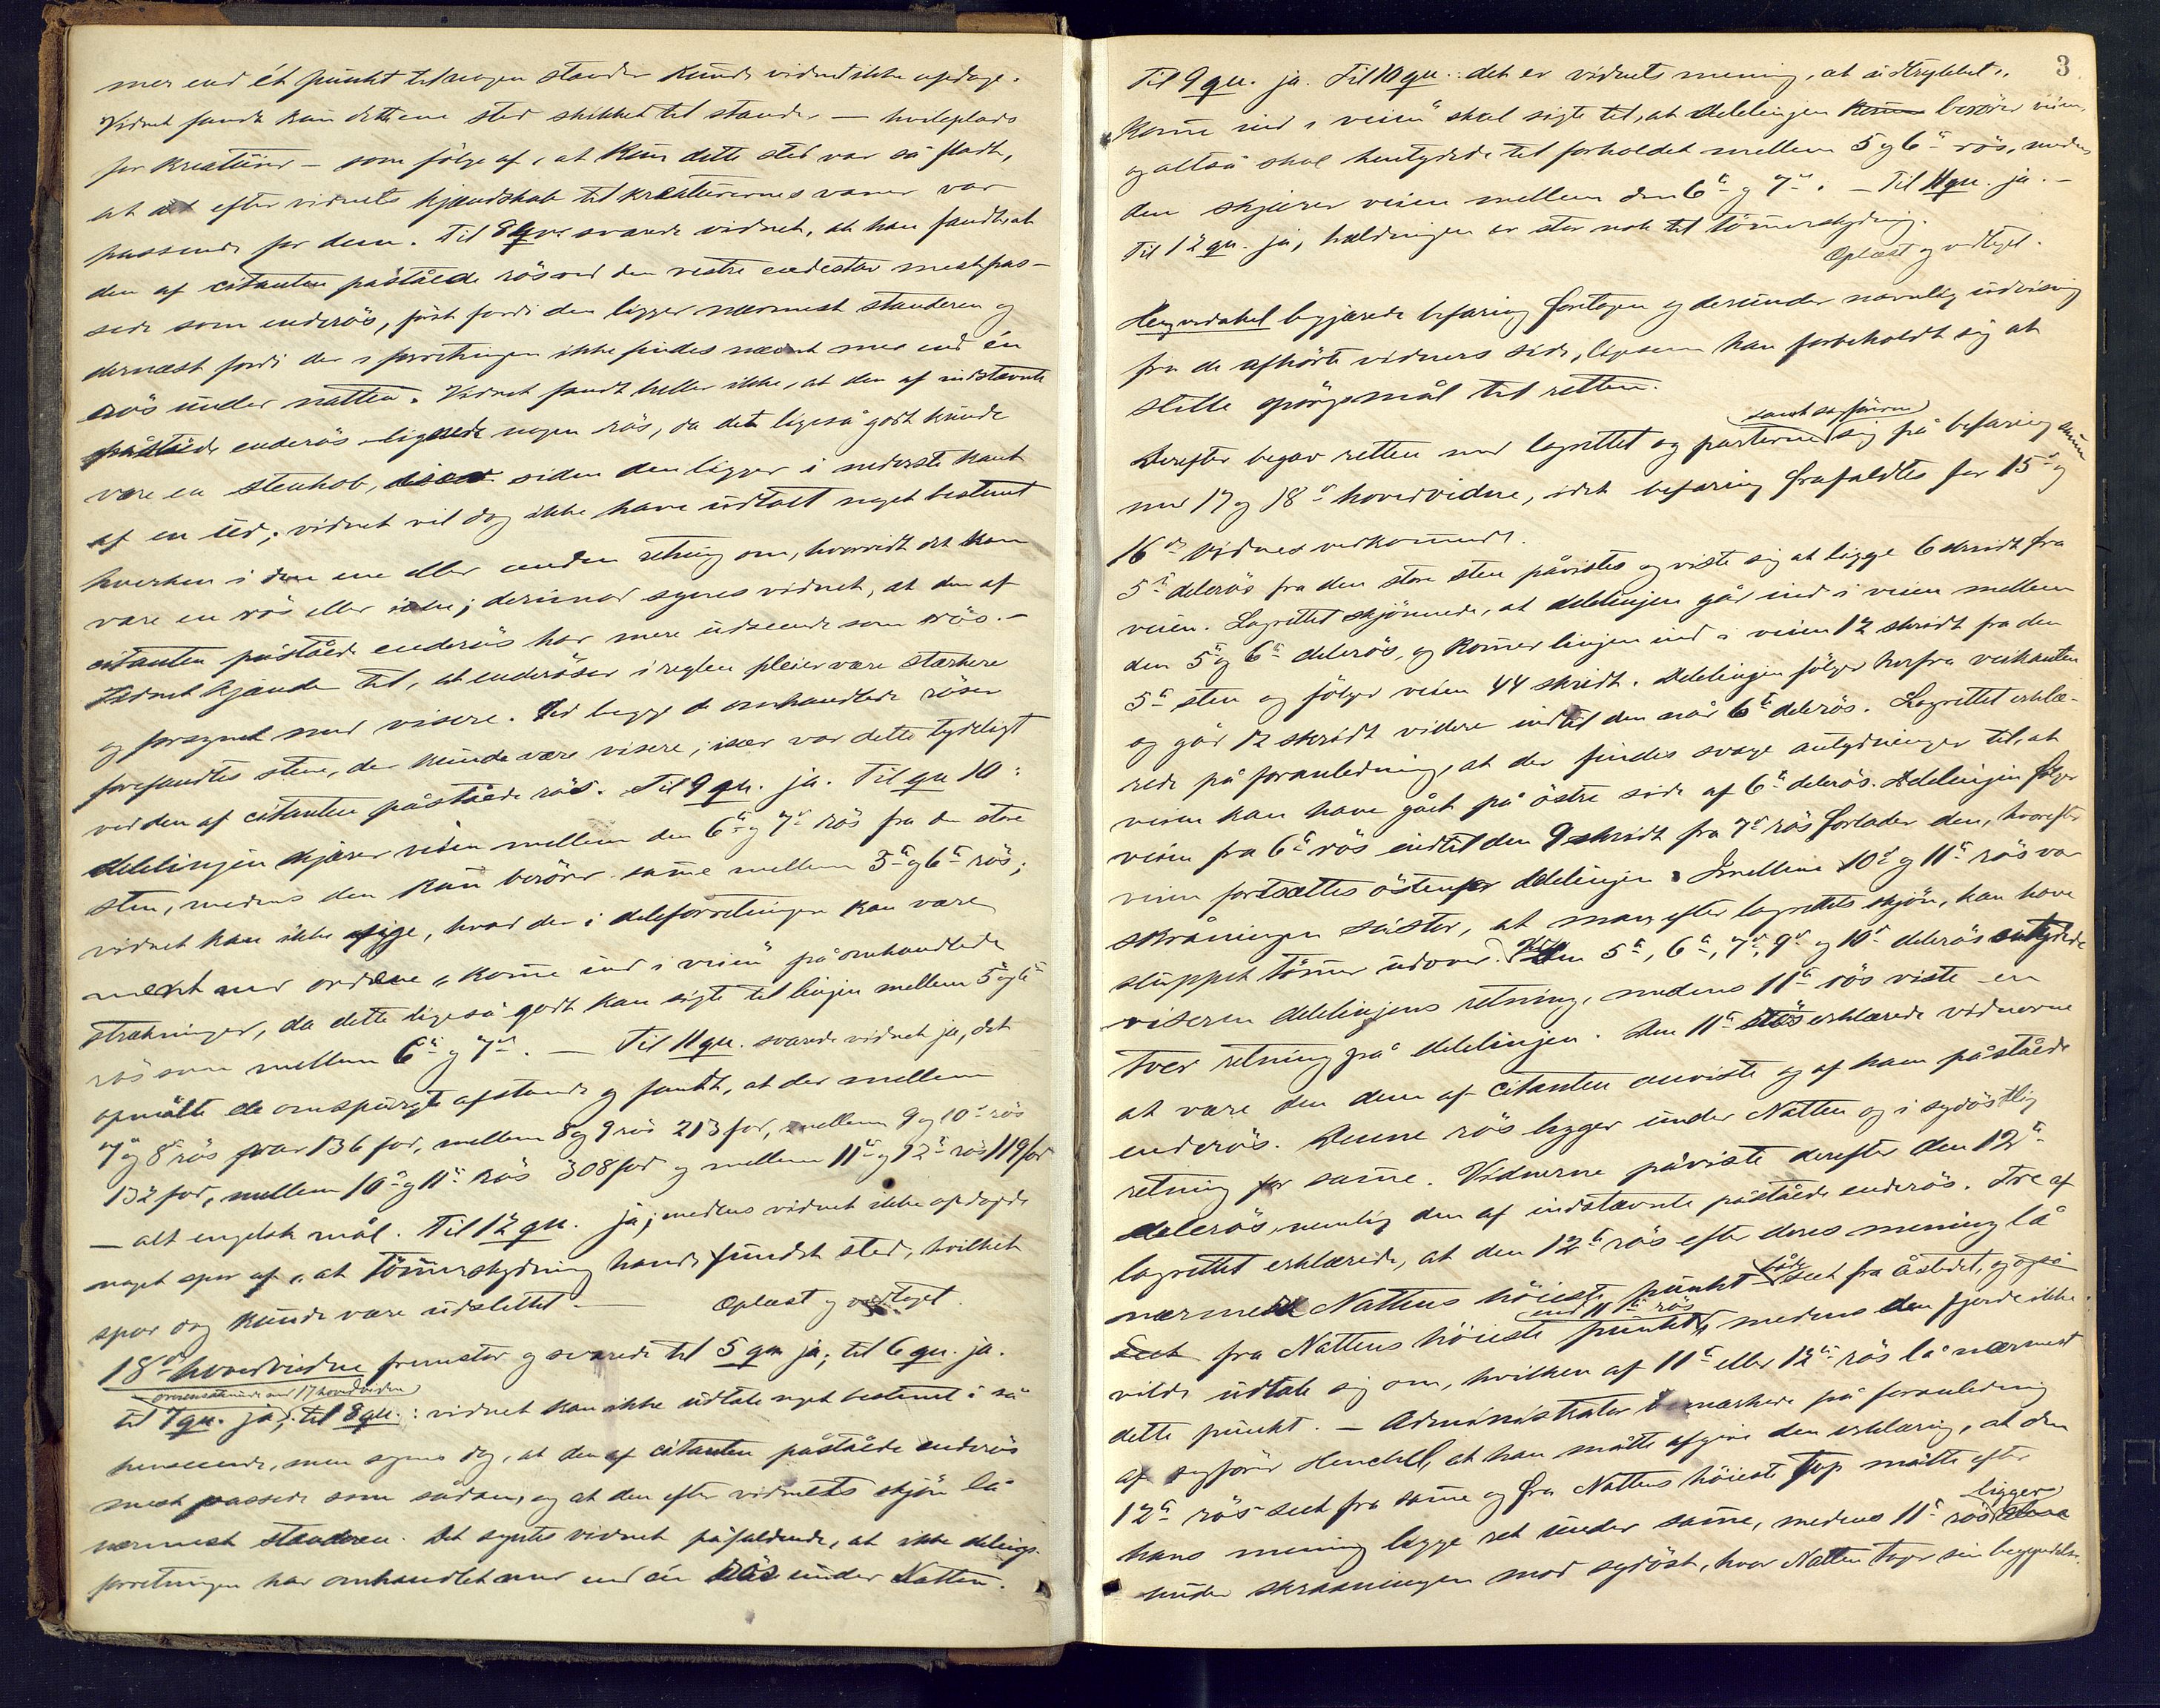 mer end ét punkt tilmagen stander kunde vidnet ikke opdage.
Vidnet fandt kun dette ene sted skikket til stander — hvileplads
for kreaturer – som følge af, at kun dette sted var så fladt,
at det efter vidnets kjendskab til kreaturernes vaner var
passende for dem. Til 8 qu. svarede vidnet, at han fandt, at
den af citanten påståede rös ved den vestre endestav mest pas-
sede som enderös, först fordi den ligger nærmest standeren og
dernæst fordi der i forretningen ikke findes nævnt mer end én
rös under natten. Vidnet fandt heller ikke, at den af indstævnte
påståede enderös lignede nogen rös, da det ligeså godt kunde
være en stenhob, siden den ligger i nederste kant
af en urd; vidnet vil dog ikke have udtalt noget bestemt
hverken i den ene eller anden retning om, hvorvidt det kan
være en rös eller ikke; derimod synes vidnet, at den af
citanten påståede enderös har mere udseende som rös. –
Vidnet kjender til, at enderöser i reglen pleier være stærkere
og forsynet med visere. Ved begge de omhandlede röser
forefandtes stene, der kunde være visere; især var dette tydeligt
ved den af citanten påståede rös. Til 9 qu. ja. Til qu 10:
delelinjen skjærer veien mellem den 6te og 7de rös fra den store
sten, medens den kun berörer samme mellem 5te og 6te rös;
vidnet kan ikke sige, hvad der i deleforretningen kan være
ment med ordene „komme ind i veien" på omhandlede
strækninger, da dette ligeså godt kan sigte til linjen mellem 5te og 6te
rös som mellem 6te og 7de. — Til 11 qu. svarede vidnet ja, det
opmålte de omspurgte afstande og fandt, at der mellem
7de og 8de rös var 136 fod, mellem 8 og 9 rös 213 fod, mellem 9 og 10de rös
132 fod, mellem 10de og 11te rös 308 fod og mellem 11te og 12te rös 119 fod
— alt engelsk mål. Til 12 qu. ja; medens vidnet ikke opdagede
noget spor af, at tömmerskydning havde fundet sted, hvilket
spor dog kunde være udslettet. — Oplæst og vedtaget.
18de hovedvidne fremstod og svarede til 5 qu ja; til 6 qu. ja.
overensstemmende med 17 hovedvidne
til 7 qu. ja; til 8 qu.: vidnet kan ikke udtale noget bestemt i så
henseende, men synes dog, at den af citanten påståede enderös
mest passede som sådan, og at den efter vidnets skjön lå
nærmest standeren. Det syntes vidnet påfaldende, at ikke delings-
forretningen har omhandlet mer end én rös under Natten.
3
Til 9 qu. ja. Til 10 qu.: det er vidnets mening, at udtrykket „
komme ind i veien" skal sigte til, at delelinjen berörer veien,
og altså skal hentydede til forholdet mellem 5 og 6te rös, medens
den skjærer veien mellem den 6te og 7de. — Til 11 qu. ja. –
Til 12 qu. ja, hældningen er stor nok til tömmerskydning.
Oplæst og vedtaget.
begjærede befaring foretagen og derunder navnlig udvisning
fra de afhörte vidners side, ligesom han forbeholdt sig at
stille spörgsmål til retten.
samt sagförerne
Derefter begav retten med lagrettet og parterne sig på befaring
med 17 og 18de hovedvidne, idet befaring frafaldtes for 15de og
16de vidnes vedkommende.
5te delerös fra den store sten påvistes og viste sig at ligge 6 skridt fra
veien. Lagrettet skjönnede, at delelinjen går ind i veien mellem
den 5te og 6te delerös, og kommer linjen ind i veien 12 skridt fra den
5te sten og fölger veien 44 skridt. Delelinjen fölger herfra veikanten
og går 12 skridt videre indtil den når 6te delerös. Lagrettet erklæ-
rede på foranledning, at der findes svage antydninger til, at
veien kan have gået på östre side af 6te delerös. Delelinjen fölger
veien fra 6te rös indtil den 9 skridt fra 7de rös forlader den, hvorefter
veien fortsættes östenfor delelinjen. Imellem 10de og 11te rös var
skråningen sådan, at man, efter lagrettets skjön, kan have
sluppet tömmer udover. Ved den 5te, 6te, 7de, 9de og 10de delerös antydede
viseren delelinjens retning, medens 11te rös viste en
tver retning på delelinjen. Den 11te rös erklærede vidnerne
at være den dem af citanten anviste og af ham påståede
enderös. Denne rös ligger under Natten og i sydöstlig
retning for samme. Vidnerne påviste derefter den 12te
delerös, nemlig den af indstævnte påståede enderös. Tre af
lagrettet erklærede, at den 12te rös efter deres mening lå
nærmest Nattens höieste punkt både seet fra åstedet, og også
end 11te rös
seet fra Nattens höieste punkt, medens den fjerde ikke
vilde udtale sig om, hvilken af 11te eller 12te rös lå nærmest
dette punkt. — Administrator bemærkede på foranledning
af sagförer, at han måtte afgive den erklæring, at den
12te rös seet fra samme og fra Nattens höieste top måtte efter
hans mening ligge ret under samme, medens 11te rös ligger
under skraaningen mod sydöst, hvor Natten tager sin begyndelse.